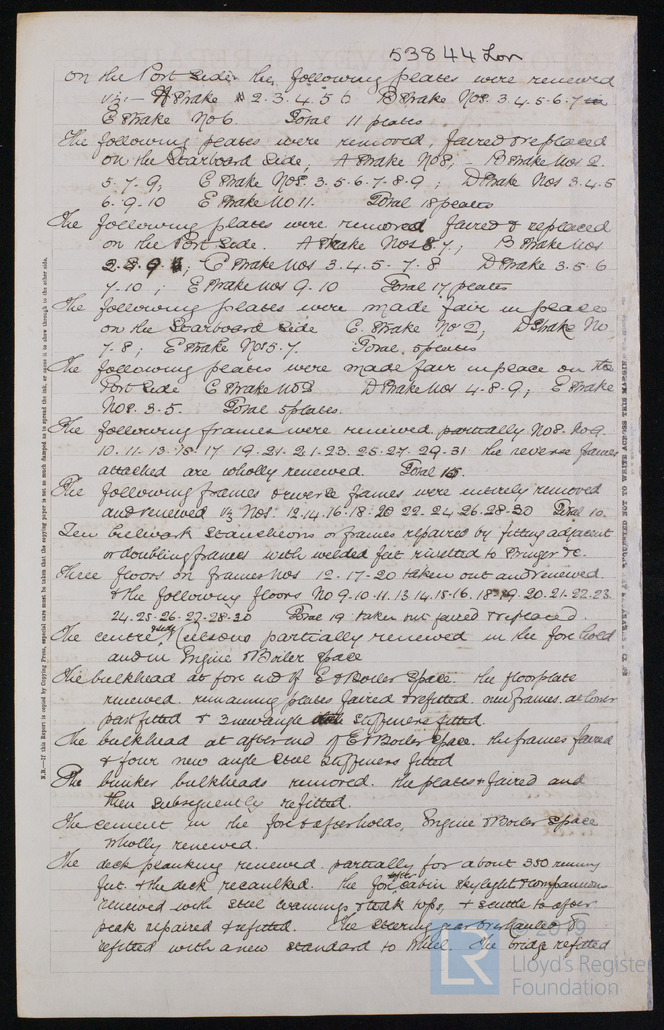 53844 Lon
on the Port Side the following plates were renewed
viz:- A Strake # 2.3.4.5 6 B Strake Nos. 3.4.5.6.7
E Strake No 6. Total 11 plates
The following plates were removed, faired & replaced
on the Starboard Side, A Strake No 8, - B Strake Nos 2.
5.7.9, C Strake Nos. 3.5.6.7.8.9; D Strake Nos 3.4.5
6.9.10 E Strake No 11. Total 18 plates
The following plates were removed faired & replaced
on the Port Side. A Strake Nos 7; B Strake Nos
C Strake Nos 3.4.5.7.8 D Strake 3.5.6
7.10; E Strake Nos 9.10 Total 17 plates
The following plates were made fair in place
on the Starboard Side C. Strake No 2; D Strake No
7.8; E Strake Nos 5.7. Total. 5 plates
The following plates were made fair in place on the
Port Side C Strake No D Strake Nos 4.8.9; E Strake
Nos. 3.5. Total 5 plates.
The following frames were renewed partially Nos. 8. No 9.
10.11.13.15.17 19.21.21.23.25.27.29.31 the reverse frames
attached are wholly renewed. Total 15.
The following frames & reverse frames were entirely removed
and renewed viz Nos. 12.14.16.18.20 22.24.26.28.30 Total 10.
Ten bulwark Stancheons or frames repaired by fitting adjacent
or doubling frames with welded feet rivetted to Stringer &c.
Three floors on frames Nos 12-17-20 taken out and renewed.
& the following floors No 9.10.11.13 14.15.16.18.19.20.21.22.23
24.25.26.27.28.30 Total 19 taken out faired & replaced.
The centre & side Keelsons partially renewed in the fore hold
and in Engine & Boiler Space
The bulkhead at fore end of E & Boiler Space. the floorplate
renewed. remaining plates faired & refitted. new frames. at lower
part fitted & 3 new angle Stiffeners fitted
The bulkhead at after end of E & Boiler Space. the frames faired
& four new angle Steel Stiffeners fitted
The bunker bulkheads removed. the plates faired and
then Subsequently refitted.
The cement in the fore & after holds, Engine & Boiler Space
wholly renewed.
The deck planking renewed partially for about 350 running
feet. & the deck recaulked. the fore & after cabin Skylight & companions
renewed with Steel coamings & teak tops, & Scuttle to after
peak repaired & refitted. The Steering gear overhauled &
refitted with a new Standard to Wheel. The bridge refitted
N.B.—If this Report is copied by Copying Press, especial care must be taken that the copying paper is not so much damped as to spread the ink, or cause it to show through to the other side.
© 2019
LR
Lloyd's Register
Foundation